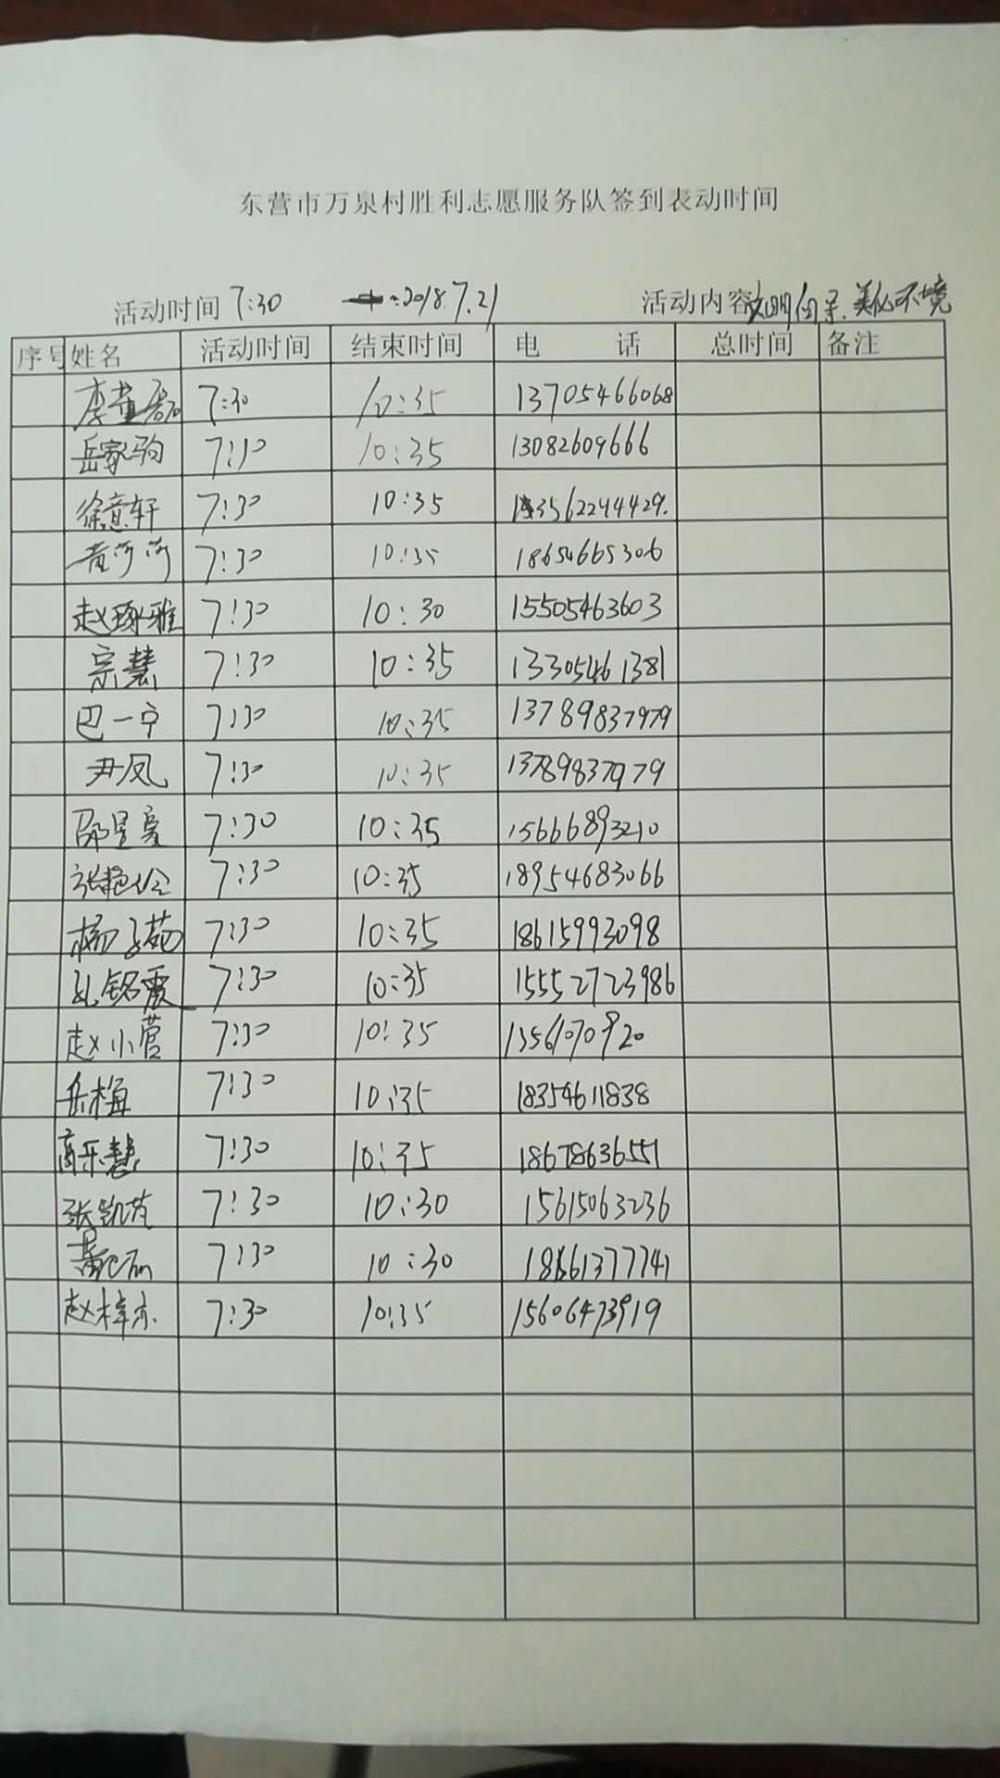 东营市万泉村胜利志愿服务队签到表动时间
活动时间 7:30 2018.7.21 活动内容 文明 美化环境
序号 姓名 活动时间 结束时间 电 话 总时间 备注
7:30 10:35 13705466068
岳家驹 7:30 10:35 13082609666
徐意轩 7:30 10:35 13562244429.
7:30 10:35 18654665306
赵琢雅 7:30 10:30 15505463603
宗慧 7:30 10:35 13305461381
巴一宁 7:30 10:35 13789837979
尹凤 7:30 10:35 13789837979
邵昱 7:30 10:35 15666893210
张艳伶 7:30 10:35 18954683066
杨子苑 7:30 10:35 18615993098
孔铭霞 7:30 10:35 15552723986
赵小营 7:30 10:35 1356070920
岳梅 7:30 10:35 18354611838
高乐慧 7:30 10:35 18678636551
张凯 7:30 10:30 15615063236
7:30 10:30 18661377741
赵梓亦 7:30 10:35 15606473919